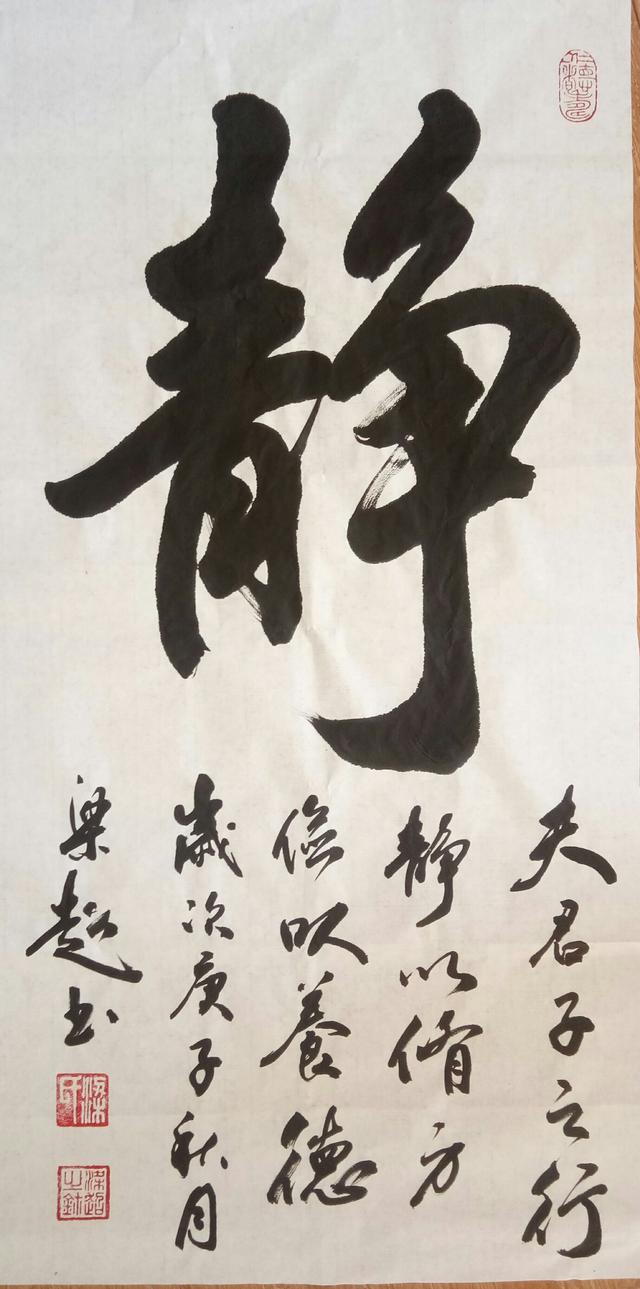 静
夫君子之行
静以脩方
俭以养德
歲次庚子秋月
梁超书
梁氏